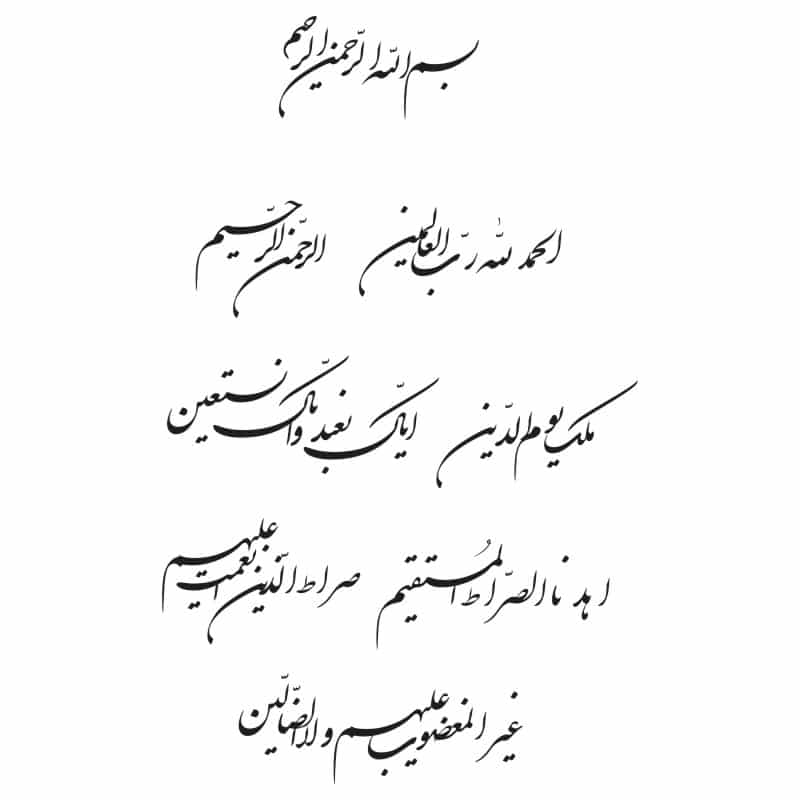 بسم اللّه الرّحمن الرحیم
الحمد للّٰه ربّ العالمین الرحمن الرّحیم
ملک یوم الدّین ایّاک نعبد و ایّاک نستعین
اهدنا الصّراط المُستقیم صراط الّذین انعمت علیهم
غیر المغضوب علیهم و لا الضّالّین